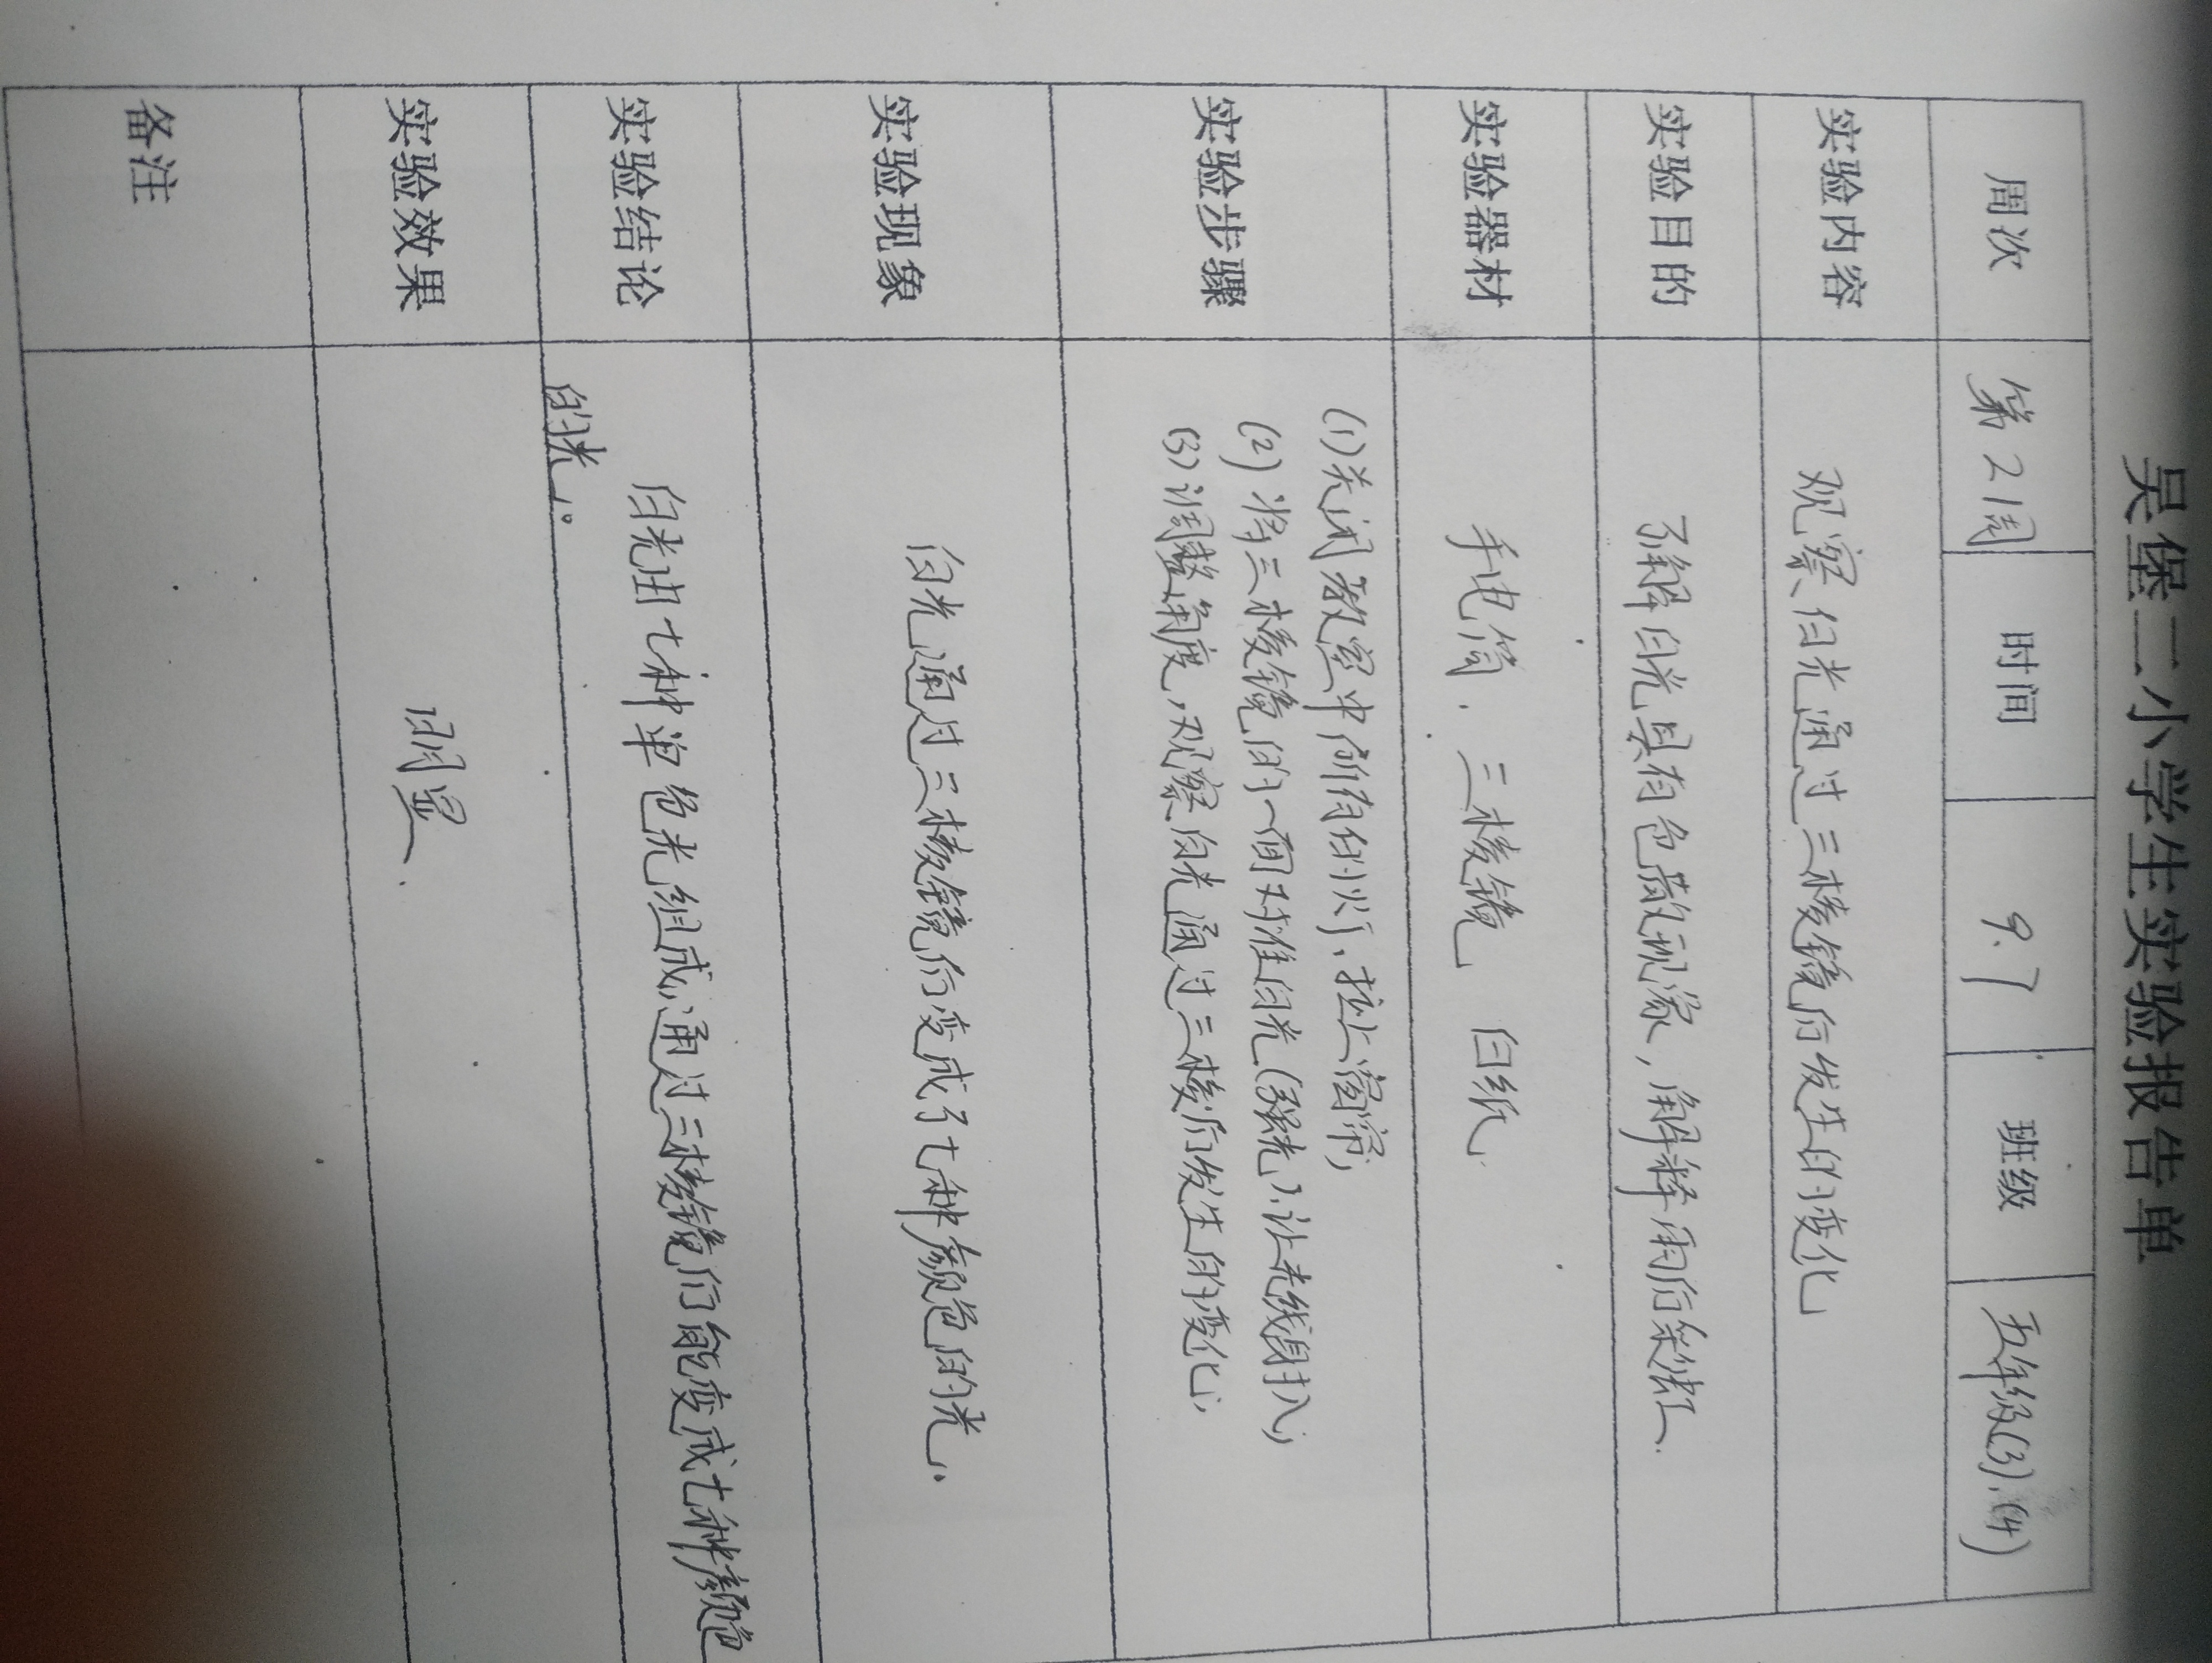 吴堡二小学生实验报告单
周次 第2周 时间 9.7 班级 五年级(3).(4)
实验内容 观察白光通过三棱镜后发生的变化
实验目的 了解白光具有色散现象，解释雨后彩虹.
实验器材 手电筒. 三棱镜 白纸.
实验步骤 (1)关闭教室中所有的灯,拉上窗帘;
(2)将三棱镜的一面对准白光(强光).让光线射入;
(3)调整角度,观察白光通过三棱后发生的变化;
实验现象 白光通过三棱镜后变成了七种颜色的光。
实验结论 白光由七种单色光组成,通过三棱镜后能变成七种颜色
的光。
实验效果 明显.
备注